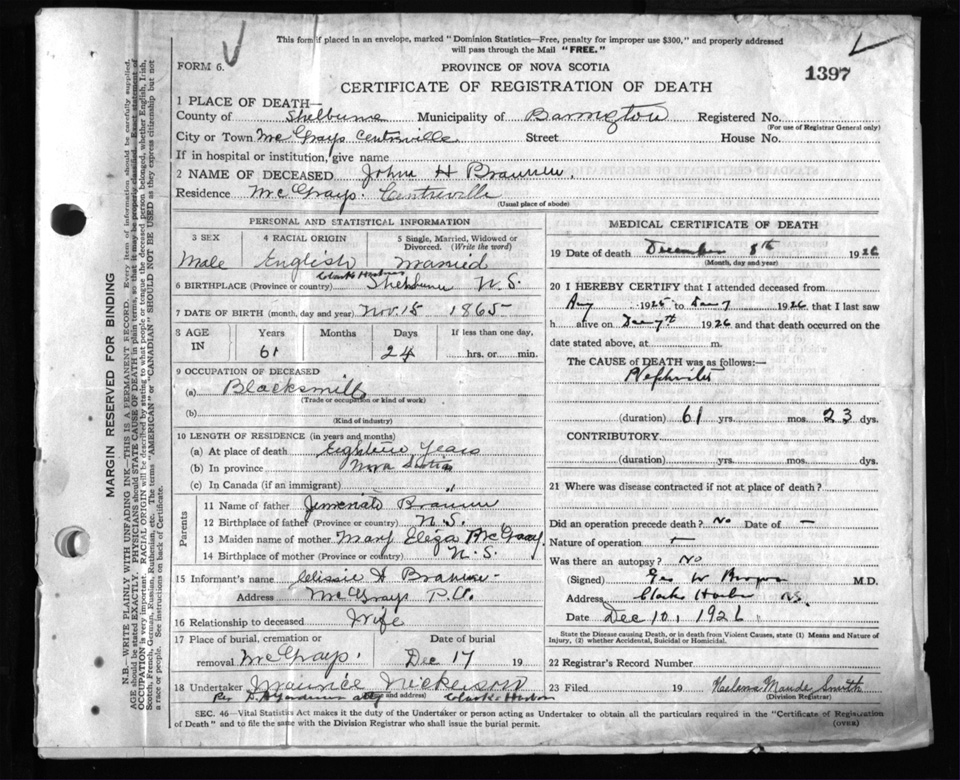 This form if placed in an envelope, marked "Dominion Statistics—Free, penalty for improper use $300," and properly addressed
will pass through the Mail "FREE."
FORM 6.
PROVINCE OF NOVA SCOTIA
1397
CERTIFICATE OF REGISTRATION OF DEATH
1 PLACE OF DEATH—
County of Shelburne Municipality of Barrington Registered No.
(For use of Registrar General only)
City or Town McGrays Centreville Street House No.
If in hospital or institution, give name
2 NAME OF DECEASED John H
Residence McGrays Centreville
(Usual place of abode)
PERSONAL AND STATISTICAL INFORMATION
3 SEX 4 RACIAL ORIGIN 5 Single, Married, Widowed or
Divorced. (Write the word)
Male English Married
Clarks Harbour
6 BIRTHPLACE (Province or country) Shelburne N.S.
7 DATE OF BIRTH (month, day and year) Nov. 15 1865
8 AGE IN Years Months Days If less than one day,
61 24 hrs. or min.
9 OCCUPATION OF DECEASED
(a) Blacksmith
(Trade or occupation or kind of work)
(b)
(Kind of industry)
10 LENGTH OF RESIDENCE (in years and months)
(a) At place of death Eighteen Years
(b) In province Nova Scotia
(c) In Canada (if an immigrant) "
Parents
11 Name of father
12 Birthplace of father (Province or country) N.S.
13 Maiden name of mother Mary Eliza McGray
14 Birthplace of mother (Province or country) N.S.
15 Informant's name H
Address McGrays P.O.
16 Relationship to deceased Wife
17 Place of burial, cremation or Date of burial
removal McGrays. Dec 17 19
18 Undertaker Maurice Nickerson
(Name and address)
Per atty Clarks Harbour
MEDICAL CERTIFICATE OF DEATH
19 Date of death December 8th 1926
(Month, day and year)
20 I HEREBY CERTIFY that I attended deceased from
1925 to 7 1926 that I last saw
h alive on 7th 1926 and that death occurred on the
date stated above, at m.
The CAUSE of DEATH was as follows:
Nephritis
(duration) 61 yrs. mos. 23 dys.
CONTRIBUTORY
(duration) yrs. mos. dys.
21 Where was disease contracted if not at place of death?
Did an operation precede death? No Date of —
Nature of operation —
Was there an autopsy? No
(Signed) Geo W Brown M.D.
Address Clarks Harbor N.S.
Date Dec 10, 1926
State the Disease causing Death, or in death from Violent Causes, state (1) Means and Nature of
Injury, (2) whether Accidental, Suicidal or Homicidal.
22 Registrar's Record Number
23 Filed 19 Maude Smith
(Division Registrar)
SEC. 46—Vital Statistics Act makes it the duty of the Undertaker or person acting as Undertaker to obtain all the particulars required in the "Certificate of Registration
of Death" and to file the same with the Division Registrar who shall issue the burial permit.
(OVER)
MARGIN RESERVED FOR BINDING
N.B.—WRITE PLAINLY WITH UNFADING INK—THIS IS A PERMANENT RECORD. Every item of information should be carefully supplied.
AGE should be stated EXACTLY. PHYSICIANS should STATE CAUSE OF DEATH in plain terms, so that it may be properly classified. Exact statement of
OCCUPATION is very important. RACIAL ORIGIN will be described by stating to what people or tongue the deceased person belonged, whether English, Irish,
Scotch, French, German, Russian, Ruthenian, etc. The terms "AMERICAN" or "CANADIAN" SHOULD NOT BE USED as they express citizenship but not
a race or people. See instructions on back of Certificate.